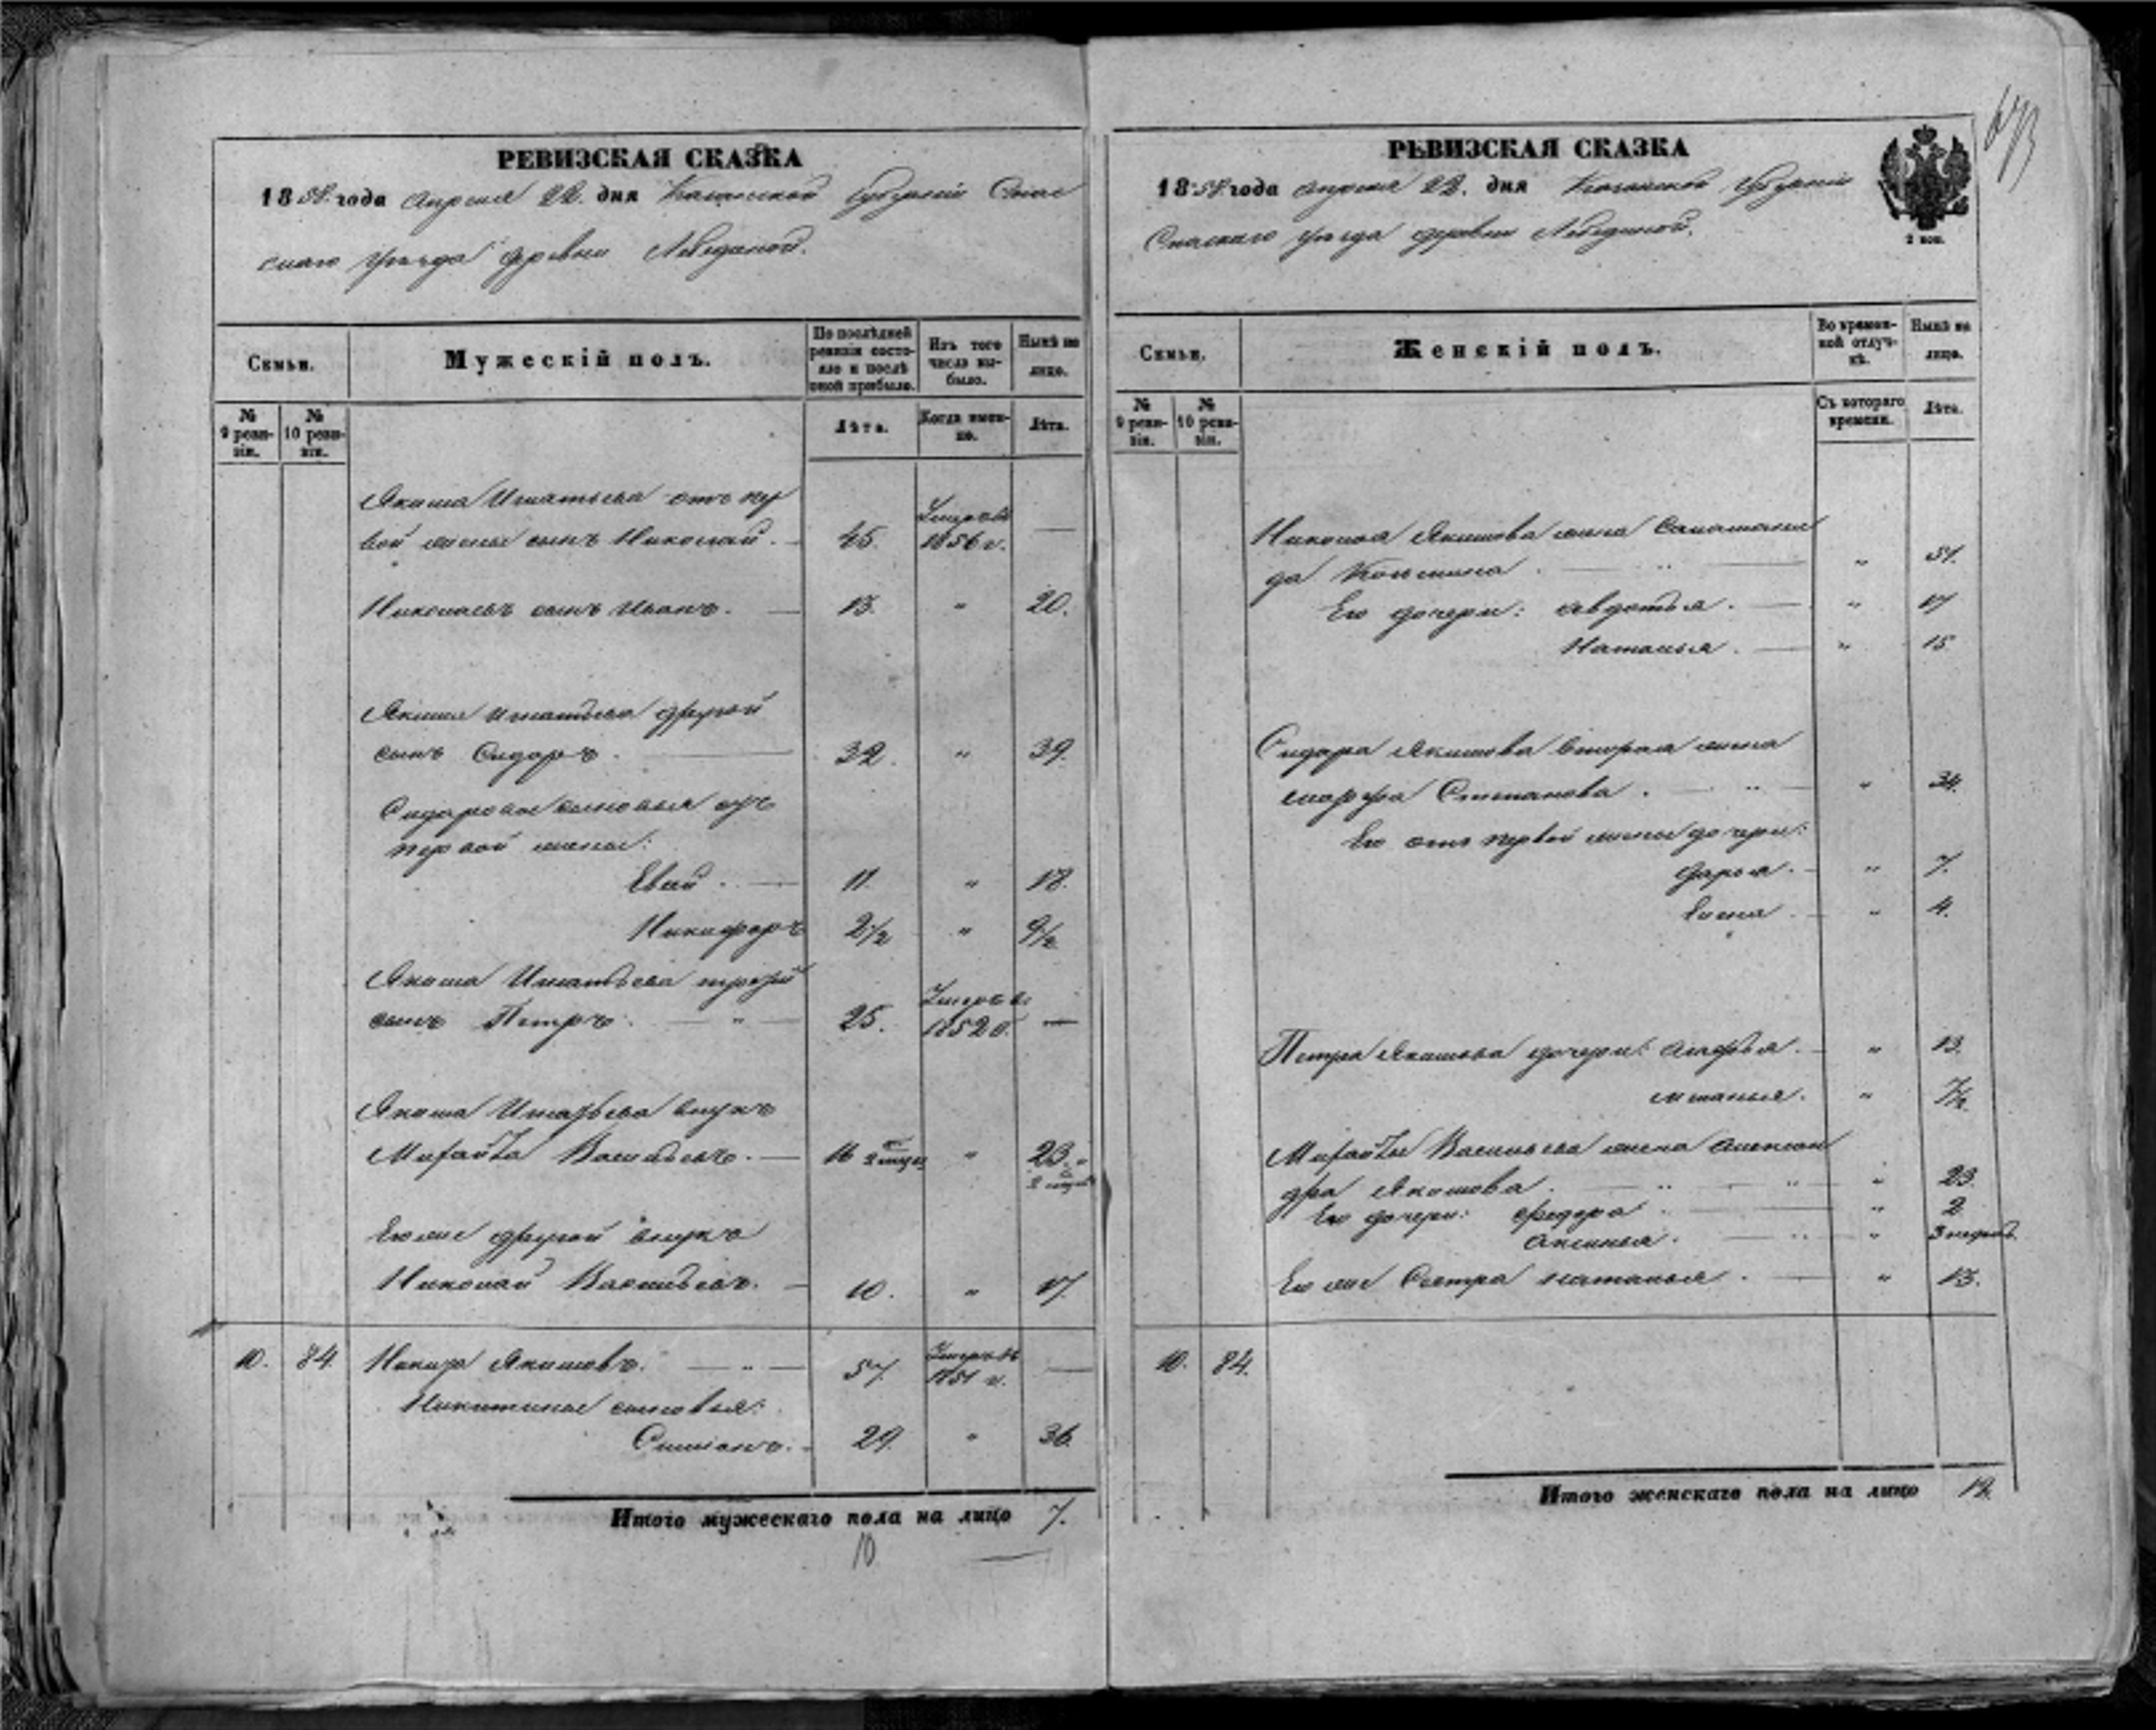 673
РЕВИЗСКАЯ СКАЗКА
1858 года Апреля 22. дня Казанской Губернии Спас
скаго Уезда деревни Лебединой.
Семьи.
Мужескій полъ.
По послѣдней ревизіи состояло и послѣ оной прибыло.
Изъ того числа выбыло.
Нынѣ на лицо.
№ 9 ревизіи.
№ 10 ревизіи.
Лѣта.
Когда именно.
Лѣта.
Якима Игнатьева отъ пер
вой жены сынъ Николай. 45. Умеръ въ 1856 г. —
Николаевъ сынъ Иванъ. 13. " 20.
Якима Игнатьева другой
сынъ Сидоръ. 32. " 39.
Сидоровы сыновья отъ
первой жены:
11. " 18.
Никифоръ 2 1/2 " 9 1/2
Якима Игнатьева третій
сынъ Петръ. " 25. Умеръ въ 1852 г. —
Якима Игнатьева внукъ
Васильевъ. 16 " 23.
Его же другой внукъ
Николай Васильевъ. 10. " 17.
10. 84. Никита Якимовъ. " 57. Умеръ въ 1851 г. —
Никитины сыновья:
29. " 36.
Итого мужескаго пола на лицо 7.
10
РЕВИЗСКАЯ СКАЗКА
1858 года Апреля 22. дня Казанской Губернии
Спасскаго Уезда деревни Лебединой.
2 коп.
Семьи.
Женскій полъ.
Во временной отлучкѣ.
Нынѣ на лицо.
№ 9 ревизіи.
№ 10 ревизіи.
Съ котораго времени.
Лѣта.
Николая Якимова жена
" 51.
Его дочери: Авдотья. " 17
Наталья. " 15
Сидора Якимова вторая жена
Марфа Степанова. " " 34.
Его отъ первой жены дочери:
Дарья. " 7.
" 4.
Петра Якимова дочери: " 13.
" 7 1/2
Васильева жена Александ
дра Якимова. " 23.
Его дочери: Федора " 2
Аксинья. " 3 недель.
Его же Сестра Наталья. " 13.
10. 84.
Итого женскаго пола на лицо 12.